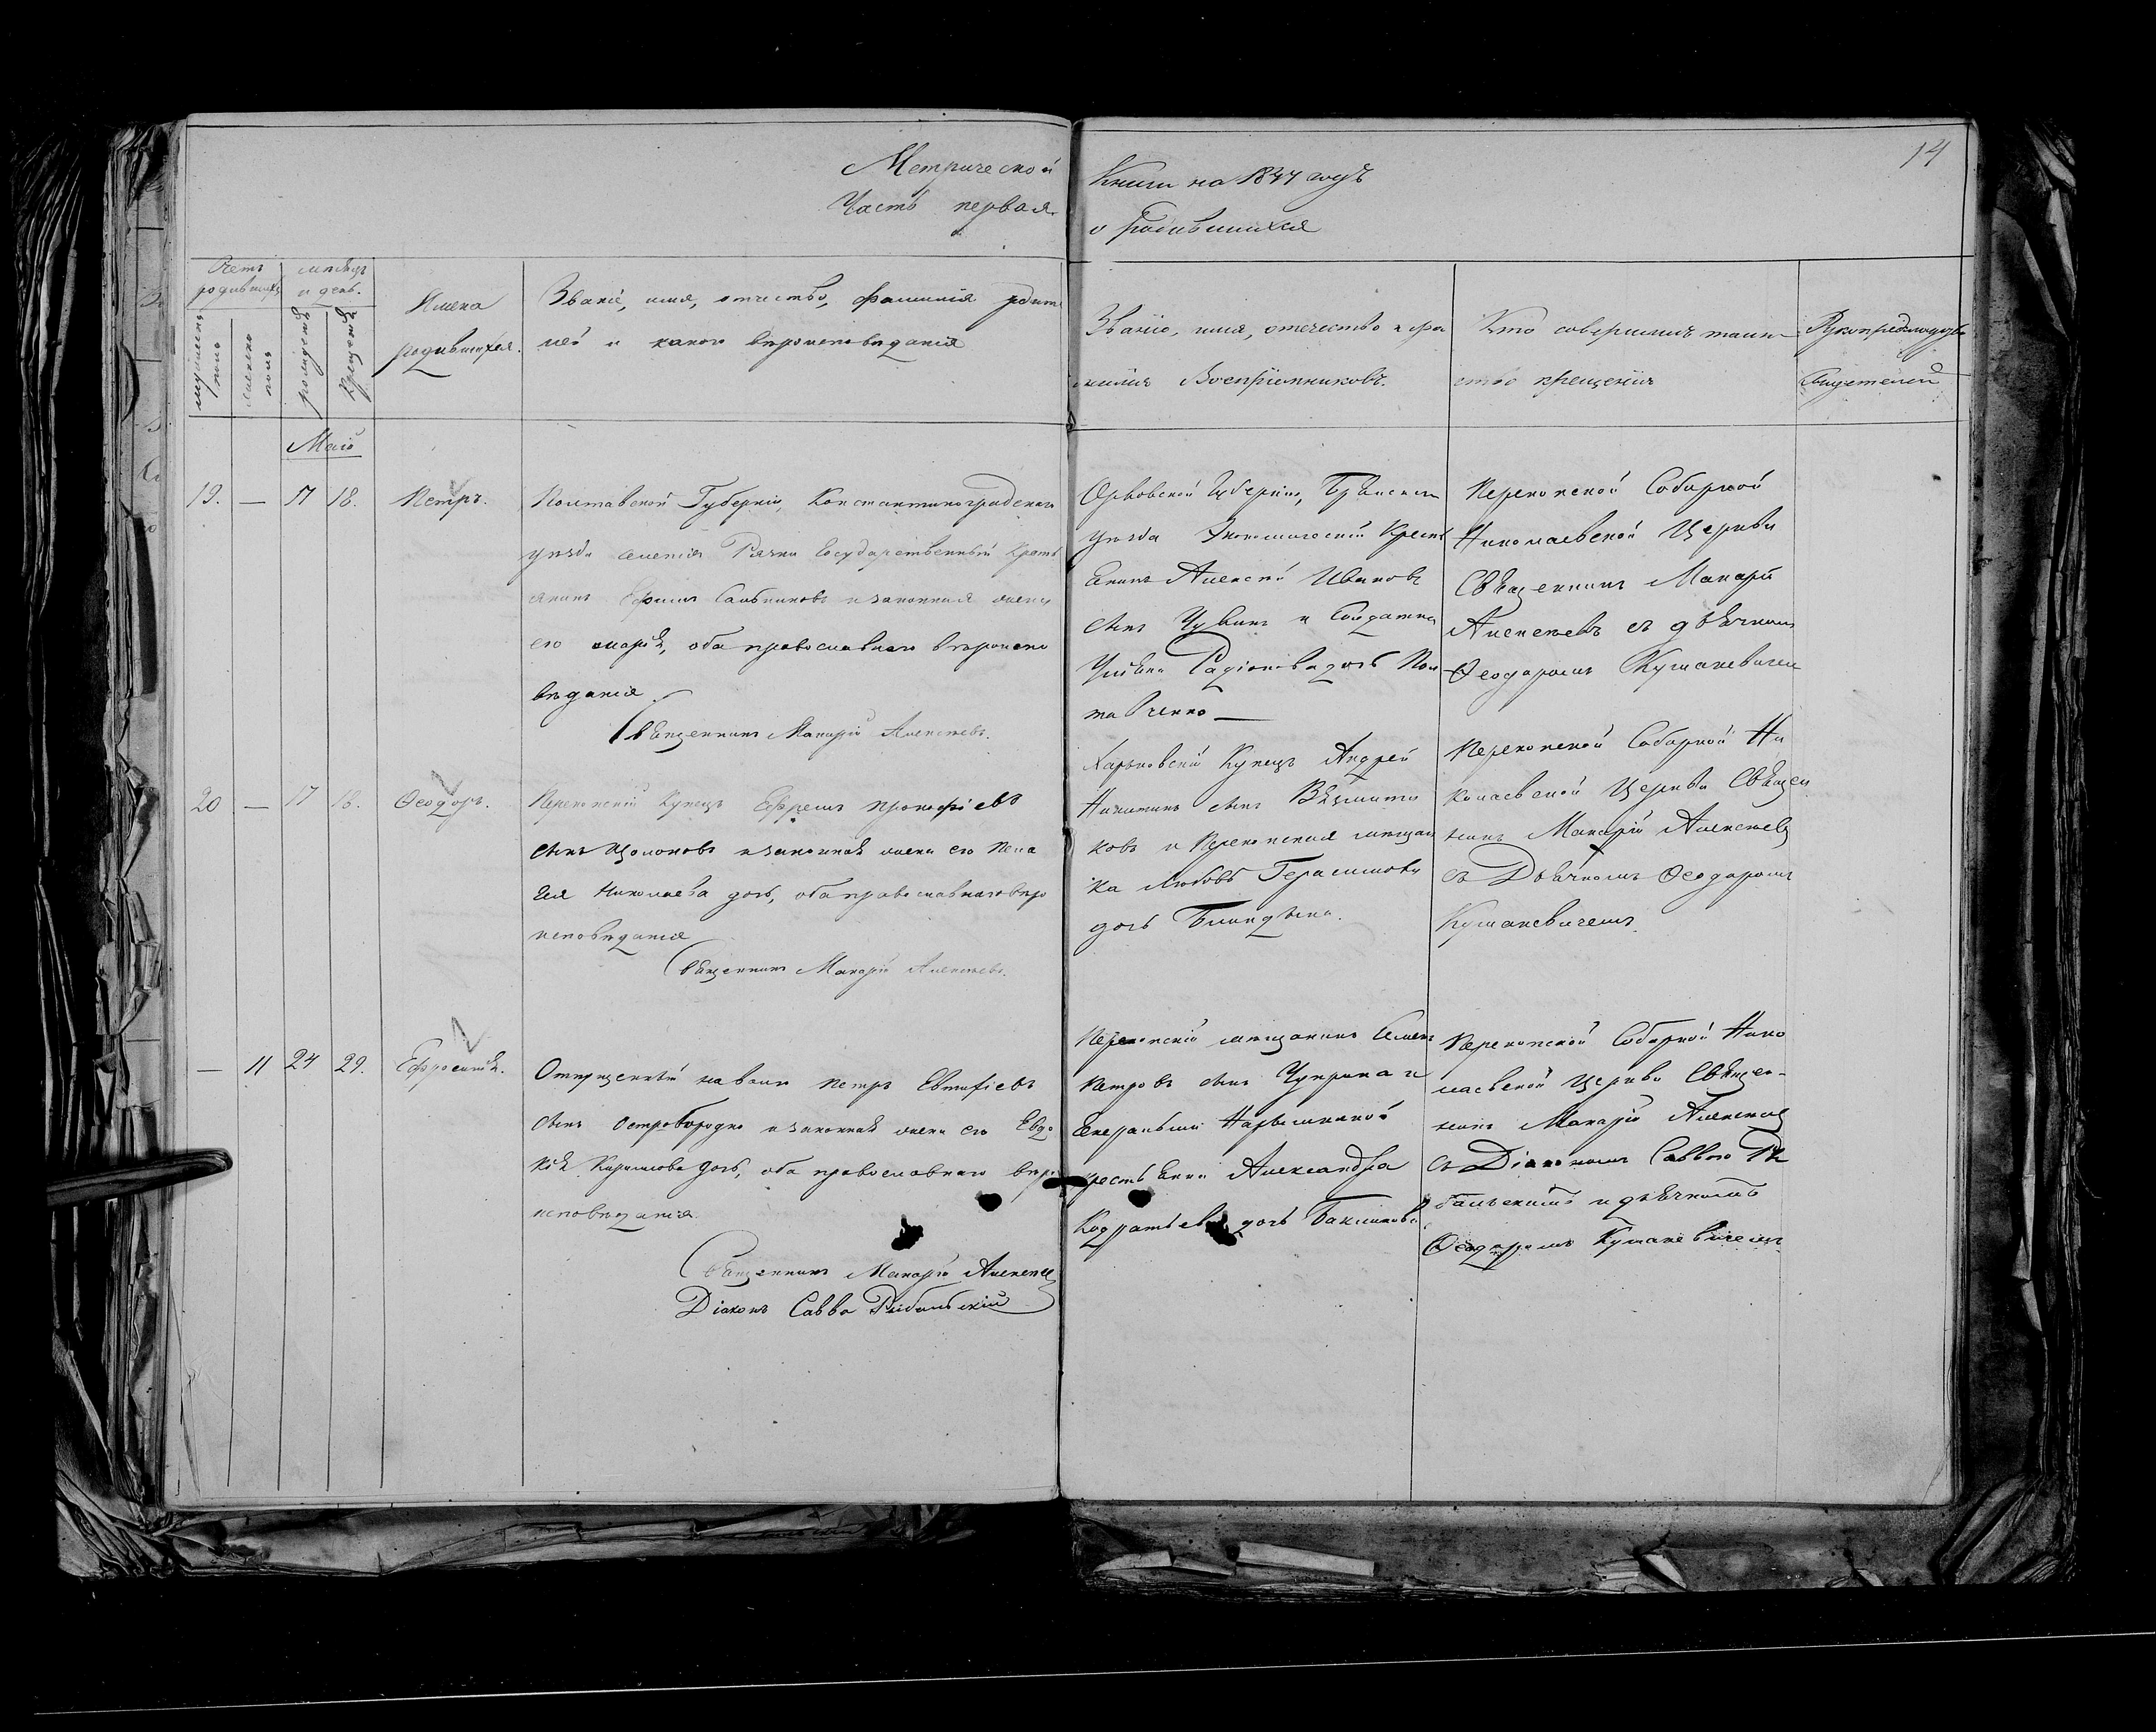 14
Метрической
Часть первая
Книги на 1844 годъ
о родившихся
Счетъ родившихся
мѣсяцъ и день.
мужеска полъ
женска полъ
рожденія
крещенія
Имена
родившихся.
Званіе, имя, отчество, фамилія родите
лей и какого вѣроисповѣданія
Званіе, имя, отечество и фа
милія Воспріемниковъ.
Кто совершилъ таин
ство крещенія
Рукоприкладство
Свидетелей
Маій
19. — 17 18. Петръ.
Полтавской Губерніи, Константиноградскаго
уѣзда селенія Рячки Государственный Кресть
янинъ Ефимъ Сальниковъ и законная жена
его Марія, оба православнаго вѣроиспо
вѣданія
Священникъ Макарій Алексѣевъ.
Орловской Губерніи, Брянскаго
уѣзда Экономическій Кресть
янинъ Алексѣй Ивановъ
сынъ Чувинъ и Солдатка
Ульяна Радіонова дочь Пол
тавченко —
Перекопской Соборной
Николаевской Церкви
Священникъ Макарій
Алексѣевъ съ дьячкомъ
Ѳеодоромъ Кушакевичем
20 — 17 18. Ѳеодоръ.
Перекопскій Купецъ Ефремъ Прокофіевъ
сынъ Щолоковъ и законная жена его Пела
гея Николаева дочь, оба православнаго вѣро
исповѣданія
Священникъ Макарій Алексѣевъ.
Харьковскій Купецъ Андрей
Никитинъ сынъ
ковъ и Перекопская мещан
ка Любовь Герасимова
дочь
Перекопской Соборной Ни
колаевской Церкви Священ
никъ Макарій Алексѣевъ
съ Дьячкомъ Ѳеодоромъ
Кушакевичемъ.
— 11 24 29. Ефросинія.
Отпущенный на волю Петръ Евтифіевъ
сынъ Островородко и законная жена его Евдо
кія Кирилова дочь, оба православнаго вѣро
исповѣданія.
Священникъ Макарій Алексѣевъ
Діаконъ Савва Рыбальскій
Перекопскій мещанинъ Семенъ
Петровъ сынъ Чуприна и
Генеральши Нарышкиной
крестьянка Александра
Кодратьева дочь Баклинова
Перекопской Соборной Нико
лаевской Церкви Священ-
никъ Макарій Алексѣевъ
съ Діакономъ Саввою Ры
бальскимъ и дьячкомъ
Ѳеодоромъ Кушакевичемъ